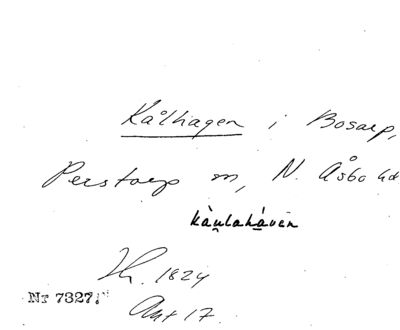 Kålhagen i Bosarp,
Perstorp sn, N. Åsbo hd
kàulaháven
1824
Nr 7327.
Akt 17.